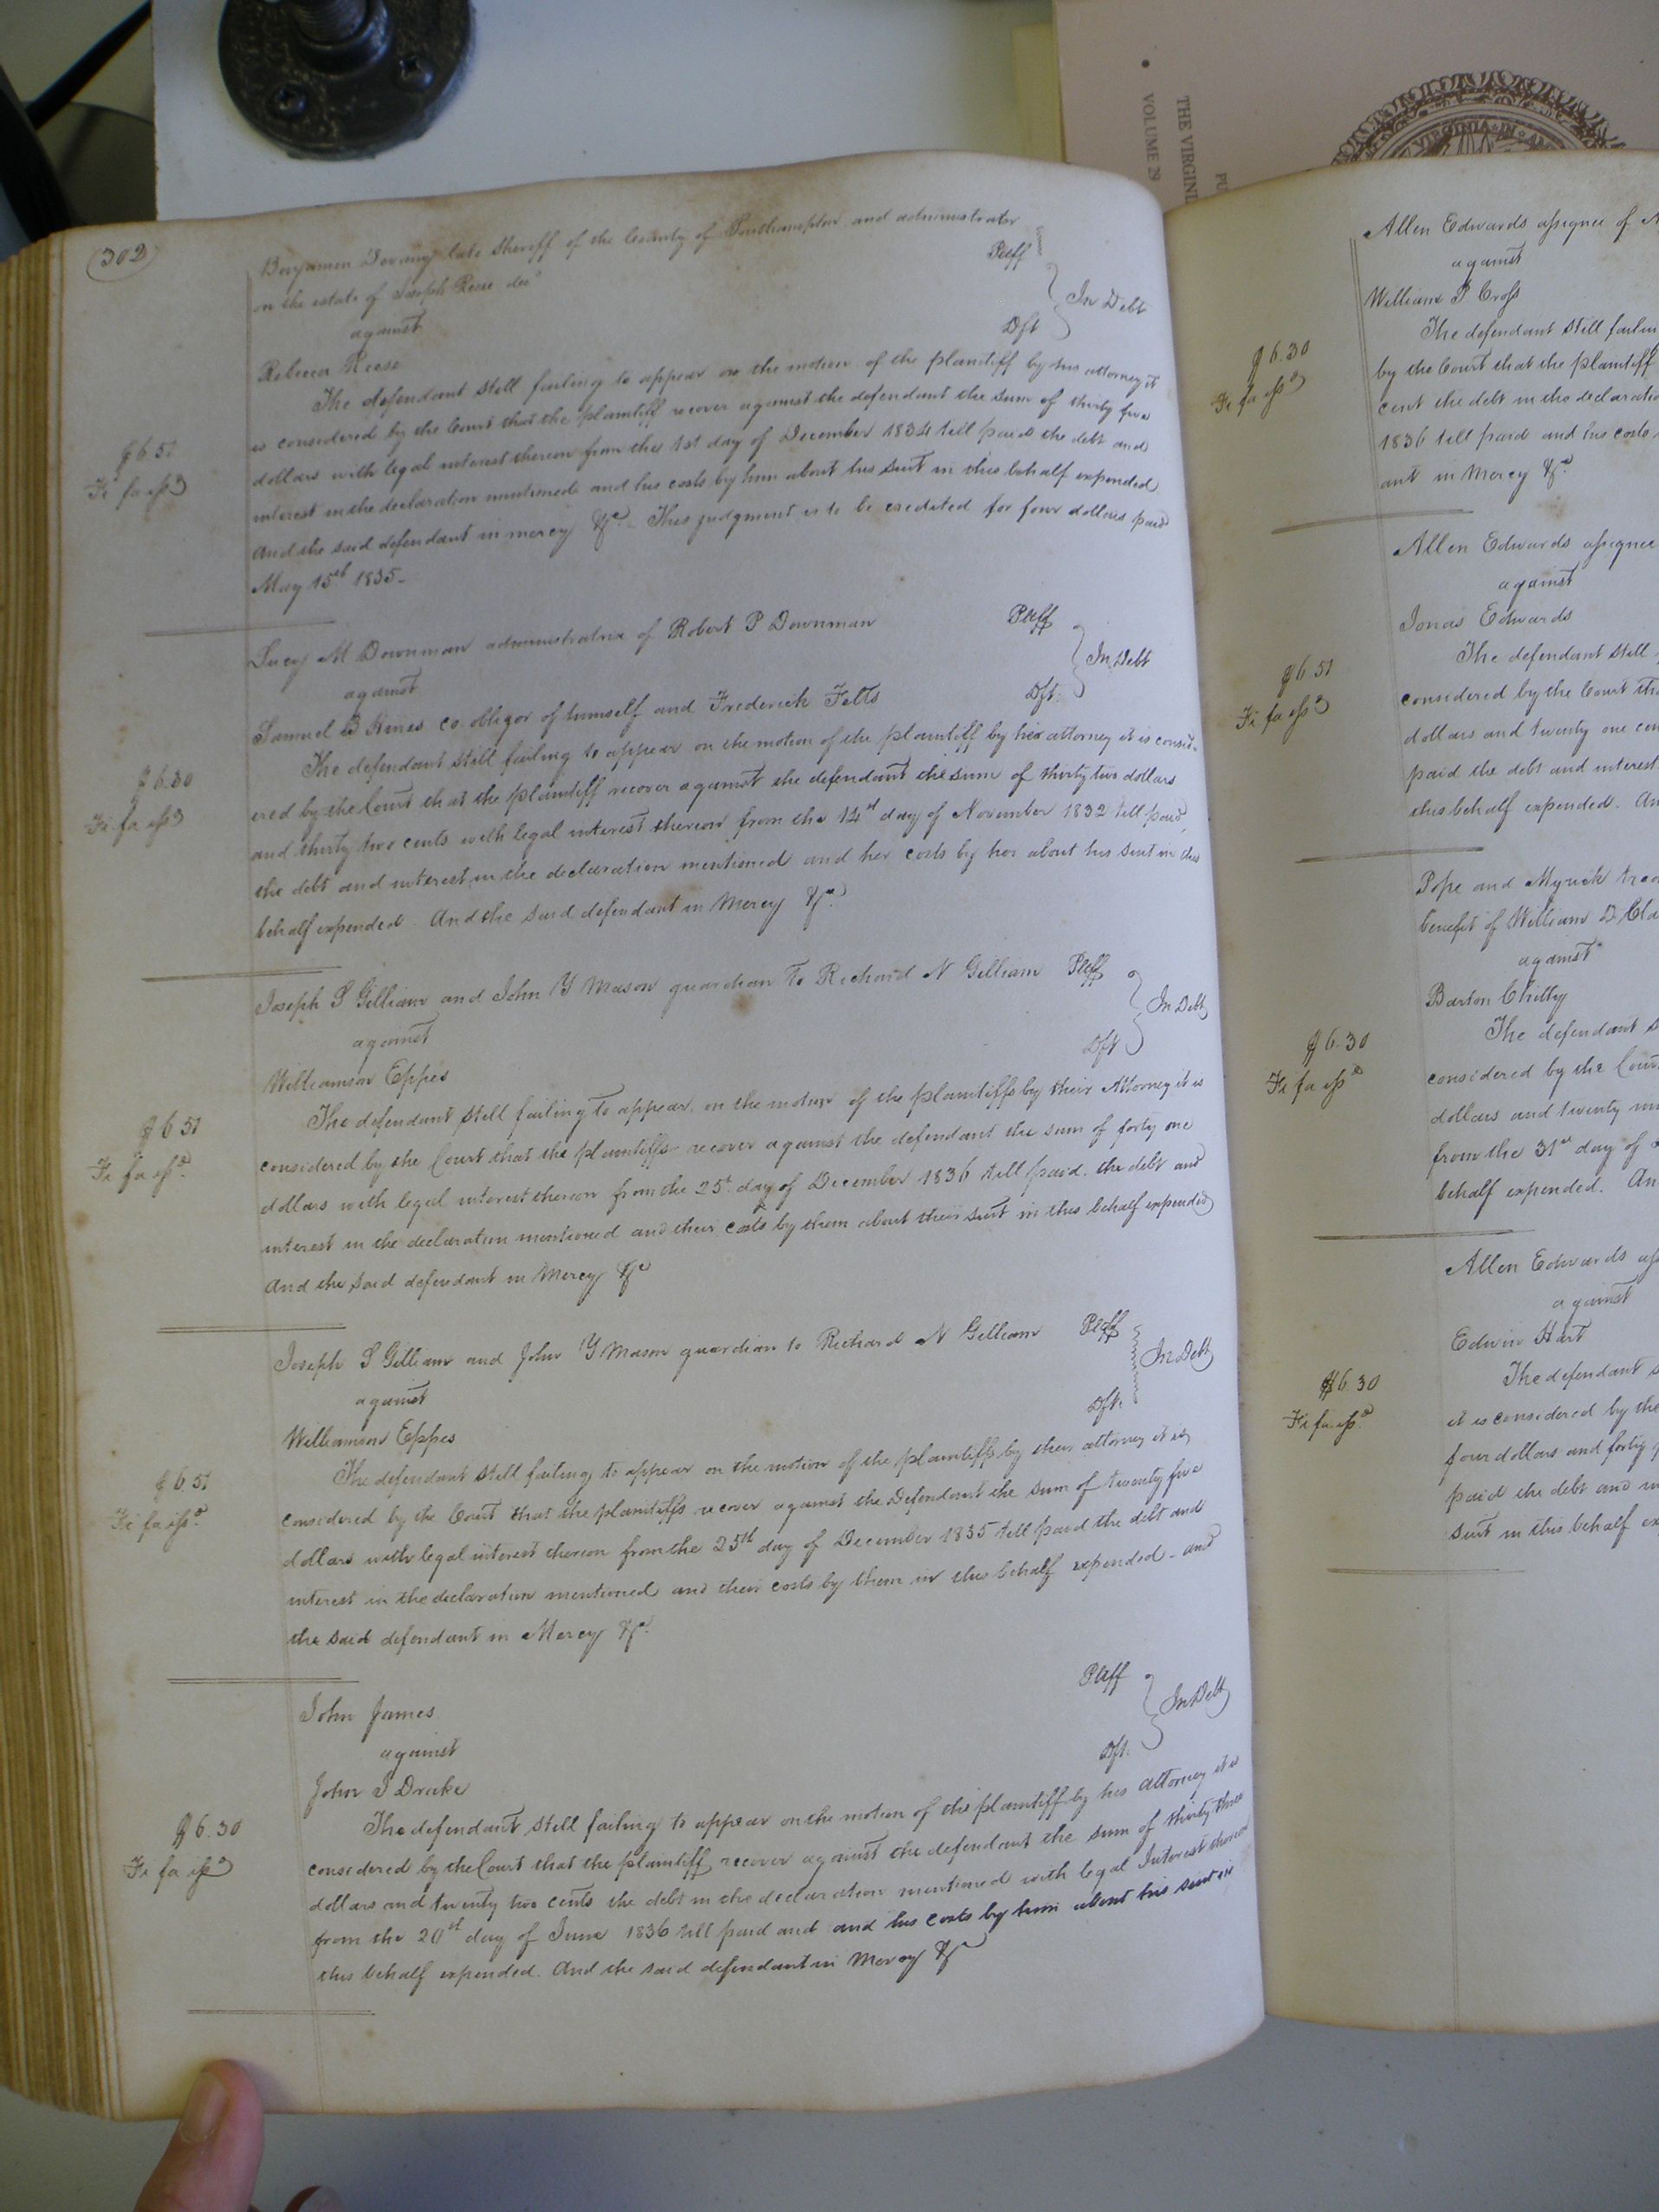 THE VIRGINI
VOLUME 29
PU
VIRGINIA
302
Benjamin Devany late Sheriff of the County of Southampton and administrator
on the estate of Joseph Reese decd Plff
against In Debt
Rebecca Reese Dft
The defendant still failing to appear on the motion of the plaintiff by his attorney it
is considered by the Court that the plaintiff recover against the defendant the sum of thirty five
dollars with legal interest thereon from the 1st day of December 1834 till paid the debt and
interest in the declaration mentioned and his costs by him about his suit in this behalf expended
And the said defendant in mercy &c. This judgment is to be credited for four dollars paid
May 15th 1835.
$6.51
Fi fa issd
Lucy M Downman administratrix of Robert P Downman Plff
against In Debt
Samuel B Hines co. obligor of himself and Frederick Felts Dft.
The defendant still failing to appear on the motion of the plaintiff by her attorney it is consid-
ered by the Court that the plaintiff recover against the defendant the sum of thirty two dollars
and thirty two cents with legal interest thereon from the 14st day of November 1832 till paid,
the debt and interest in the declaration mentioned and her costs by her about his suit in this
behalf expended. And the said defendant in Mercy &c.
$6.30
Fi fa issd
Joseph S Gilliam and John Y Mason guardian to Richard N Gilliam Plff
against In Debt
Williamson Eppes Dft
The defendant still failing to appear, on the motion of the plaintiffs by their Attorney it is
considered by the Court that the plaintiffs recover against the defendant the sum of forty one
dollars with legal interest thereon from the 25t. day of December 1836 till paid. the debt and
interest in the declaration mentioned and their costs by them about their suit in this behalf expended
And the said defendant in Mercy &c
$6 51
Fi fa issd.
Joseph S Gilliam and John Y Mason guardian to Richard N Gilliam Plff
against In Debt
Williamson Eppes Dft.
The defendant still failing to appear on the motion of the plaintiffs by their attorney it is
considered by the Court that the plaintiffs recover against the Defendant the sum of twenty five
dollars with legal interest thereon from the 25th day of December 1835 till paid the debt and
interest in the declaration mentioned and their costs by them in this behalf expended - and
the said defendant in Mercy &c.
$6.51
Fi fa issd.
John James Plff
against In Debt
John S Drake Dft.
The defendant still failing to appear on the motion of the plaintiff by his Attorney it is
considered by the Court that the plaintiff recover against the defendant the sum of thirty three
dollars and twenty two cents the debt in the declaration mentioned with legal Interest thereon
from the 20st day of June 1836 till paid and and his costs by him about his suit in
this behalf expended. And the said defendant in Mercy &c
$6.30
Fi fa issd
Allen Edwards assignee of
against
William P Cross
The defendant still failin
by the Court that the plaintiff
cent the debt in the declaratio
1836 till paid and his costs
ant in Mercy &c.
$6.30
Fi fa issd
Allen Edwards assignee
against
Jonas Edwards
The defendant still
considered by the Court tha
dollars and twenty one cen
paid the debt and interest
this behalf expended. An
$6.51
Fi fa issd
Pope and Myrick
benefit of William D Cla
against
Barton Chitty
The defendant s
considered by the Cour
dollars and twenty
from the 31st day of
behalf expended. An
$6.30
Fi fa issd
Allen Edwards as
against
Edwin Hart
The defendant s
it is considered by the
four dollars and forty
paid the debt and in
suit in this behalf ex
$6.30
Fi fa issd.